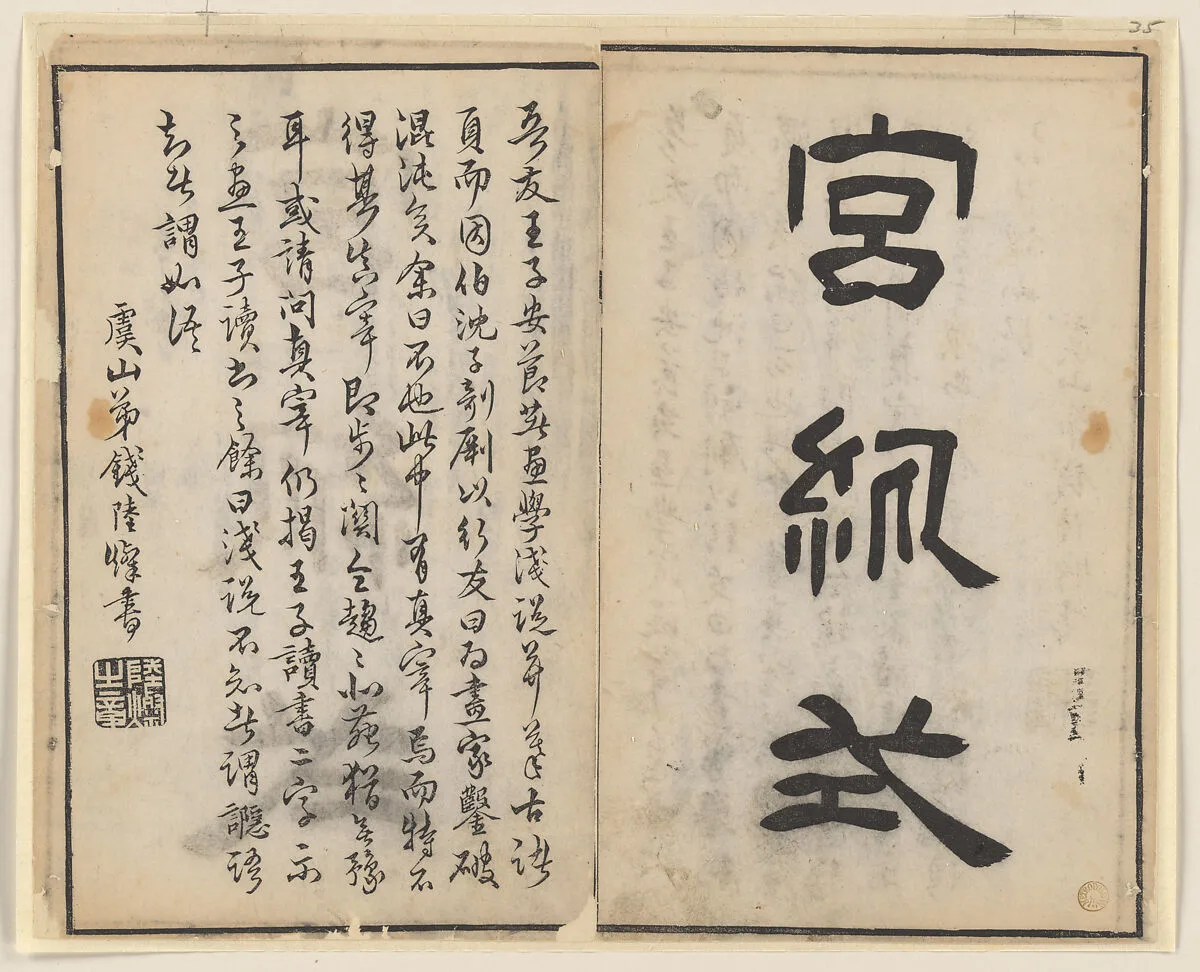 35
宮紈式
吾友王子安節著画學淺說并摹古諸
頁而因伯沈子剞劂以行友曰為畫家鑿破
混沌矣余曰不也此中有真宰焉而特不
得其真宰即步〻関仝趨〻北苑猶無豫
耳或請問真宰仍揭王子讀書二字示
之画王子讀書之餘曰淺說不知者謂讔語
知者謂如語
虞山弟錢陸燦書
陸燦之章